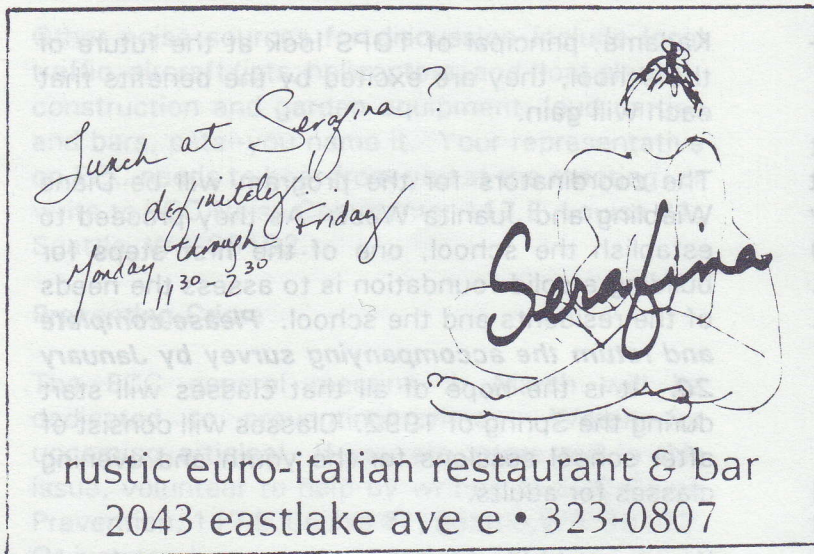 Lunch at Serafina?
definitely!!
Monday through Friday
11³⁰-2³⁰
Serafina
rustic euro-italian restaurant & bar
2043 eastlake ave e • 323-0807